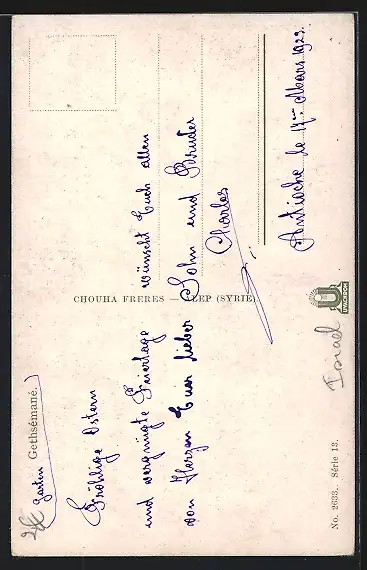 Garten Gethsémané.
Fröhlige Ostern
und vergnügte Feiertage wünscht Euch allen
von Herzen Euer lieber Sohn und Bruder
Charles
Antioche le 17me Mars 1923.
CHOUHA FRERES — ALEP (SYRIE).
UNICHROM
Israel
No. 2633. Série 13.